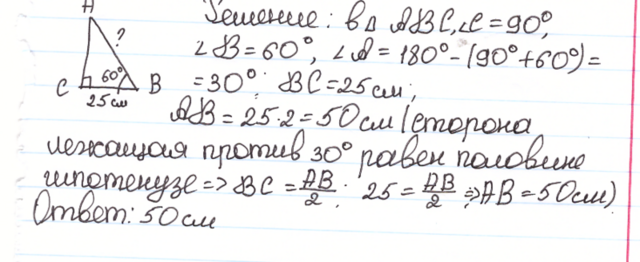 A
Решение: в Δ ABC, ∠C = 90°,
?
∠B = 60°, ∠A = 180° - (90° + 60°) =
C 60° B = 30°; BC = 25 см;
25 см
AB = 25·2 = 50 см (сторона
лежащая против 30° равен половине
гипотенузе => BC = AB/2; 25 = AB/2 => AB = 50 см)
Ответ: 50 см